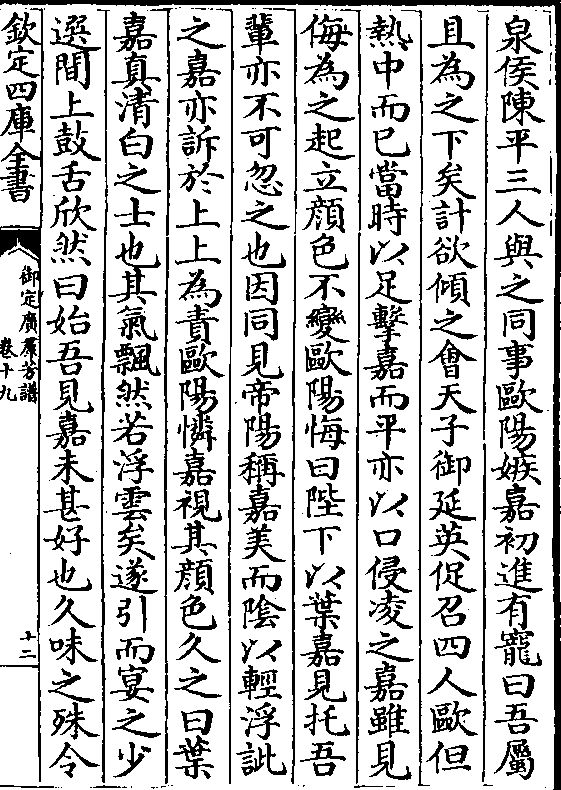 泉侯陳平三人與之同事歐陽嫉嘉初進有寵曰吾屬
且為之下矣計欲傾之會天子御延英促召四人歐但
熱中而已當時以足擊嘉而平亦以口侵凌之嘉雖見
侮為之起立顔色不變歐陽悔曰陛下以葉嘉見托吾
輩亦不可忽之也因同見帝陽稱嘉美而陰以輕浮訿
之嘉亦訴於上上為責歐陽憐嘉視其顔色久之曰葉
嘉真清白之士也其氣飄然若浮雲矣遂引而宴之少
選間上鼓舌欣然曰始吾見嘉未甚好也久味之殊令
欽定四庫全書
御定廣羣芳譜
卷十九
十二